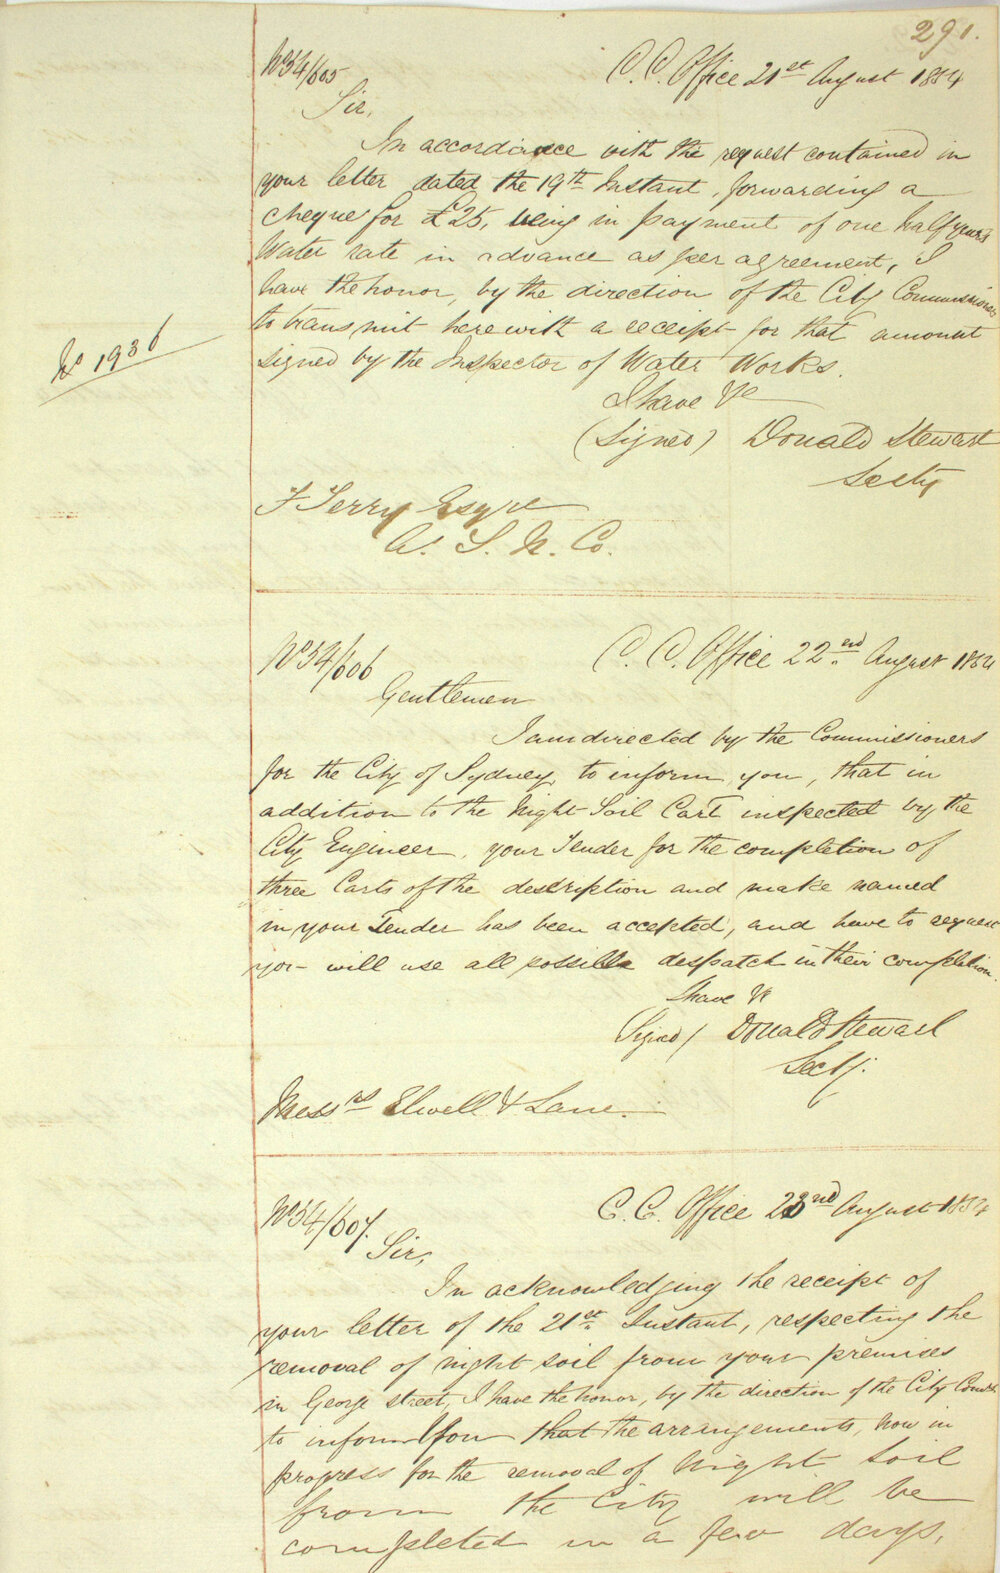 291.
No 54/605 C. C. Office 21st August 1854
Sir,
In accordance with the request contained in
your letter dated the 19th Instant, forwarding a
cheque for £25, being in payment of one half years
Water rate in advance as per agreement, I
have the honor, by the direction of the City Commissioners
to transmit herewith a receipt for that amount
No 1936
signed by the Inspector of Water Works.
I have &c
(Signed) Donald Stewart
Secty
F Terry Esqre
A. S. N. Co.
No 54/606 C. C. Office 22nd August 1854
Gentlemen
I am directed by the Commissioners
for the City of Sydney, to inform you, that in
addition to the Night Soil Cart inspected by the
City Engineer, your Tender for the completion of
three Carts of the description and make named
in your Tender has been accepted, and have to request
you will use all possible despatch in their completion.
I have &c
Signed) Donald Stewart
Secty.
Messrs Elwell & Lane.
No 54/607. C. C. Office 23nd August 1854
Sir,
In acknowledging the receipt of
your letter of the 21st Instant, respecting the
removal of night soil from your premises
in George street, I have the honor, by the direction of the City Comrs
to inform You that the arrangements, now in
progress for the removal of Night Soil
from the City will be
completed in a few days,